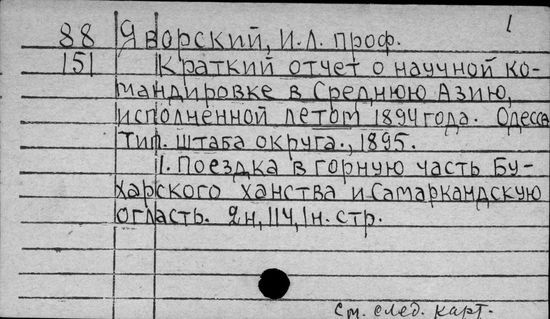 1
88 Яворский, И.Л. проф.
151 Краткий отчет о научной ко-
мандировке в Среднюю Азию,
исполненной летом 1894 года. Одесса
Тип. штаба округа., 1895.
1. Поездка в горную часть Бу-
харского ханства и Самаркандскую
огласть. 2н, 114, 1н. стр.
См. след. карт.